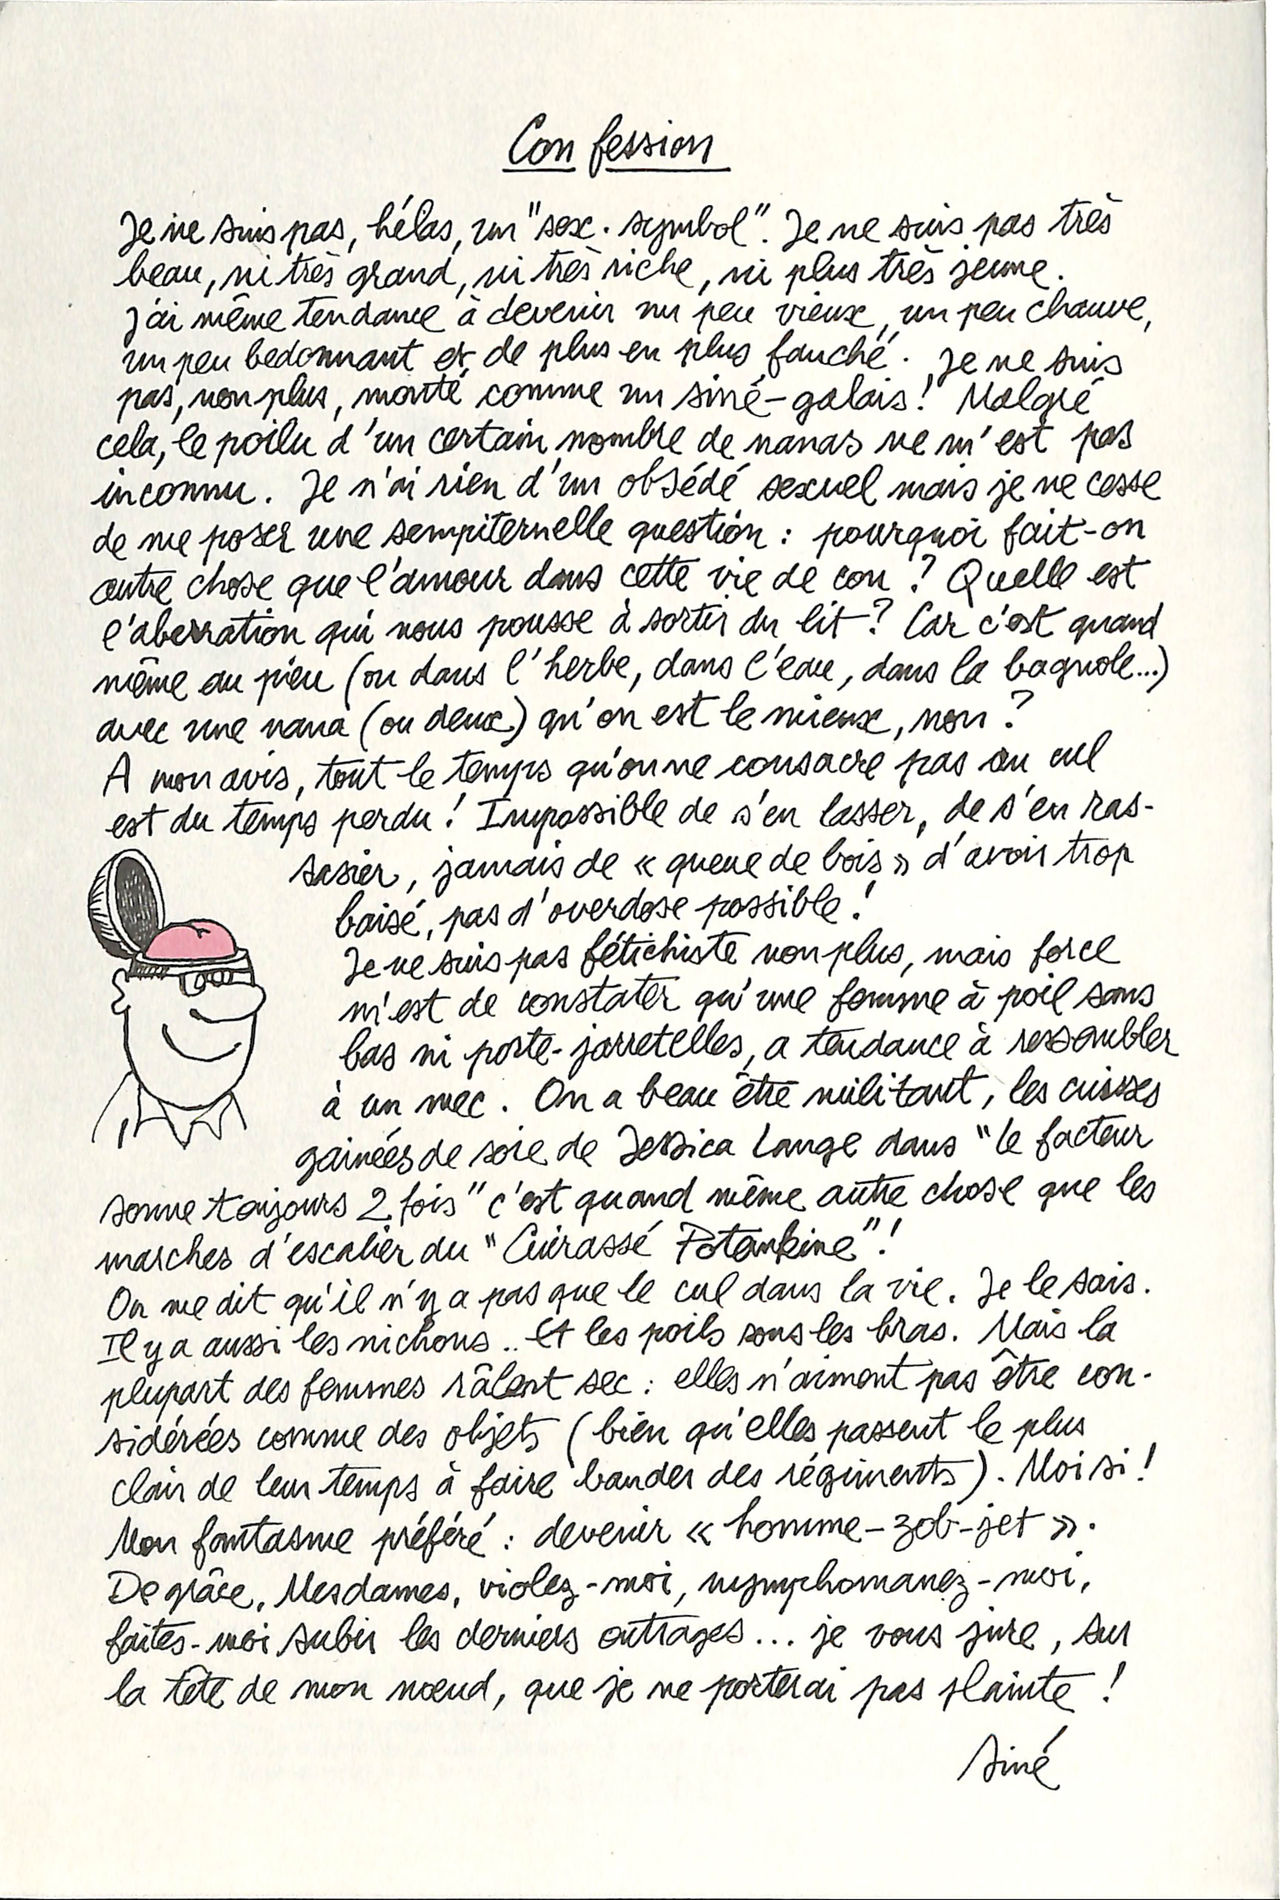 Con fession
Je ne suis pas, hélas, un "sex. symbol". Je ne suis pas très
beau, ni très grand, ni très riche, ni plus très jeune.
J'ai même tendance à devenir un peu vieux, un peu chauve,
un peu bedonnant et de plus en plus fauché. Je ne suis
pas, non plus, monté comme un siné-galais! Malgré
cela, le poilu d'un certain nombre de nanas ne m'est pas
inconnu. Je n'ai rien d'un obsédé sexuel mais je ne cesse
de me poser une sempiternelle question : pourquoi fait-on
autre chose que l'amour dans cette vie de con ? Quelle est
l'aberration qui nous pousse à sortir du lit ? Car c'est quand
même au pieu (ou dans l'herbe, dans l'eau, dans la bagnole...)
avec une nana (ou deux) qu'on est le mieux, non ?
A mon avis, tout le temps qu'on ne consacre pas au cul
est du temps perdu ! Impossible de s'en lasser, de s'en ras-
sasier, jamais de « queue de bois » d'avoir trop
baisé, pas d'overdose possible !
Je ne suis pas fétichiste non plus, mais force
m'est de constater qu'une femme à poil sans
bas ni porte-jarretelles, a tendance à ressembler
à un mec. On a beau être militant, les cuisses
gainées de soie de Jessica Lange dans "le facteur
sonne toujours 2 fois" c'est quand même autre chose que les
marches d'escalier du "Cuirassé Potemkine" !
On me dit qu'il n'y a pas que le cul dans la vie. Je le sais.
Il y a aussi les nichons.. et les poils sous les bras. Mais la
plupart des femmes râlent sec : elles n'aiment pas être con-
sidérées comme des objets (bien qu'elles passent le plus
clair de leur temps à faire bander des régiments). Moi si !
Mon fantasme préféré : devenir « homme-zob-jet ».
De grâce, Mesdames, violez-moi, nymphomanez-moi,
faites-moi subir les derniers outrages... je vous jure, sur
la tête de mon nœud, que je ne porterai pas plainte !
Siné